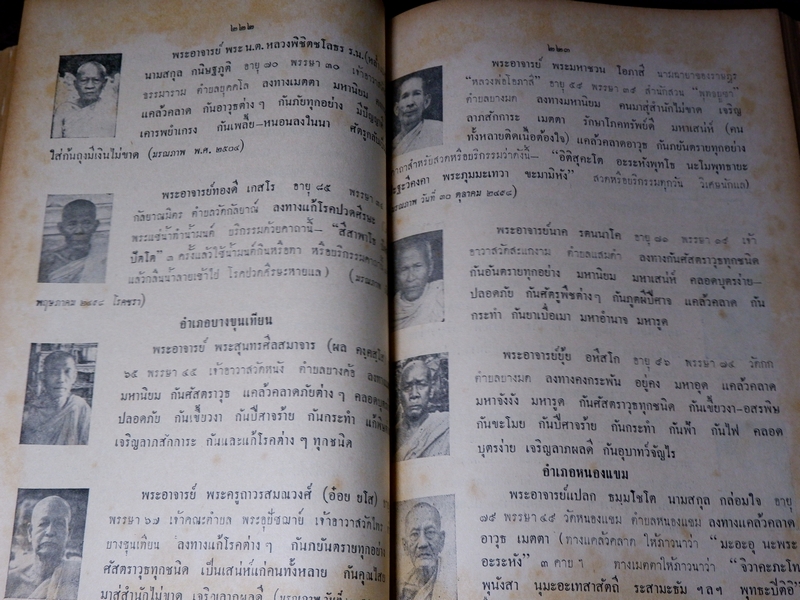 ๒๒๒
พระอาจารย์ พระ น.ต. หลวงพิชิตชโลธร ร.น.
นามสกุล กนิษฐภูติ อายุ ๗๐ พรรษา ๓๐ เจ้าอาวาส
ธรรมาราม ตำบลยุคคโล ลงทางเมตตา มหานิยม
แคล้วคลาด กันอาวุธต่าง ๆ กันภัยทุกอย่าง มีปัญญา
เคารพยำเกรง กันเพลี้ย-หนอนลงในนา ศัตรูกลับ
ใส่ก้นถุงมีเงินไม่ขาด (มรณภาพ พ.ศ. ๒๕๐๔)
พระอาจารย์ทองดี เกสโร อายุ ๘๕ พรรษา
กัลยาณมิตร ตำบลวัดกัลยาณ์ ลงทางแก้โรคปวดศีรษะ
พระแช่น้ำทำน้ำมนต์ บริกรรมด้วยคาถานี้- "สีสาพาโธ
ปัดโต" ๓ ครั้งแล้วใช้น้ำมนต์กินหรือทา หรือบริกรรมคาถา
แล้วกลืนน้ำลายเข้าไป โรคปวดศีรษะหายแล) (มรณภาพ
พฤษภาคม ๒๔๙๔ โรคชรา)
อำเภอบางขุนเทียน
พระอาจารย์ พระสุนทรศีลสมาจาร (ผล
๖๕ พรรษา ๔๕ เจ้าอาวาสวัดหนัง ตำบลบางค้อ
มหานิยม กันศัสตราวุธ แคล้วคลาดภัยต่าง ๆ คลอด
ปลอดภัย กันเขี้ยวงา กันปีศาจร้าย กันกระทำ
เจริญลาภสักการะ กันและแก้โรคต่าง ๆ ทุกชนิด
พระอาจารย์ พระครูถาวรสมณวงศ์ (อ๋อย ยโส)
พรรษา ๖๗ เจ้าคณะตำบล พระอุปัชฌาย์ เจ้าอาวาสวัดไทร
บางขุนเทียน ลงทางแก้โรคต่าง ๆ กันภยันตรายทุกอย่าง
ศัสตราวุธทุกชนิด เป็นเสน่ห์แก่คนทั้งหลาย กันคุณไสย
มาสู่สำนักไม่ขาด เจริญลาภผลดี (มรณภาพวันที่
๒๒๓
พระอาจารย์ พระมหาชวน โอภาสี
"หลวงพ่อโอภาสี" อายุ ๕๔ พรรษา ๓๕ สำนักสวน "พุทธบูชา"
ตำบลบางมด ลงทางมหานิยม คนมาสู่สำนักไม่ขาด เจริญ
ลาภสักการะ เมตตา รักษาโภคทรัพย์ดี มหาเสน่ห์ (คน
ทั้งหลายติดเนื้อต้องใจ) แคล้วคลาดอาวุธ กันภยันตรายทุกอย่าง
คาถาสำหรับสวดหรือบริกรรมว่าดังนี้- "อิติสุคะโต อะระหังพุทโธ นะโมพุทธายะ
ปะฐะวีคงคา พระภุมมะเทวา ขะมามิหัง" สวดหรือบริกรรมทุกวัน วิเศษนักแล)
(มรณภาพ วันที่ ๓๐ ตุลาคม ๒๔๙๘)
พระอาจารย์นาค รตนนาโค อายุ ๘๑ พรรษา ๑๕ เจ้า
อาวาสวัดสะแกงาม ตำบลแสมดำ ลงทางกันศัสตราวุธทุกชนิด
กันอันตรายทุกอย่าง มหานิยม มหาเสน่ห์ คลอดบุตรง่าย-
ปลอดภัย กันศัตรูพืชต่าง ๆ กันภูตผีปีศาจ แคล้วคลาด กัน
กระทำ กันยาเบื่อเมา มหาอำนาจ มหารูด
พระอาจารย์ยุ้ย อหึสโก อายุ ๙๖ พรรษา ๗๔ วัดกก
ตำบลบางมด ลงทางคงกระพัน อยู่คง มหาอุด แคล้วคลาด
มหาจังงัง มหารูด กันศัสตราวุธทุกชนิด กันเขี้ยวงา-อสรพิษ
กันขะโมย กันปีศาจร้าย กันกระทำ กันฟ้า กันไฟ คลอด
บุตรง่าย เจริญลาภผลดี กันอุบาทว์จัญไร
อำเภอหนองแขม
พระอาจารย์แปลก ธมฺมโชโต นามสกุล กล่อมใจ อายุ
๗๕ พรรษา ๔๕ วัดหนองแขม ตำบลหนองแขม ลงทางแคล้วคลาด
อาวุธ เมตตา (ทางแคล้วคลาด ให้ภาวนาว่า "มะอะอุ นะพระ
อะระหัง" ๓ คาบ ฯ ทางเมตตาให้ภาวนาว่า "จิวาคะภะโท
พุนังสา นุมะอะเทสาสัตถิ ระสามะธัม ฯลฯ พุทธะปิติอิ"